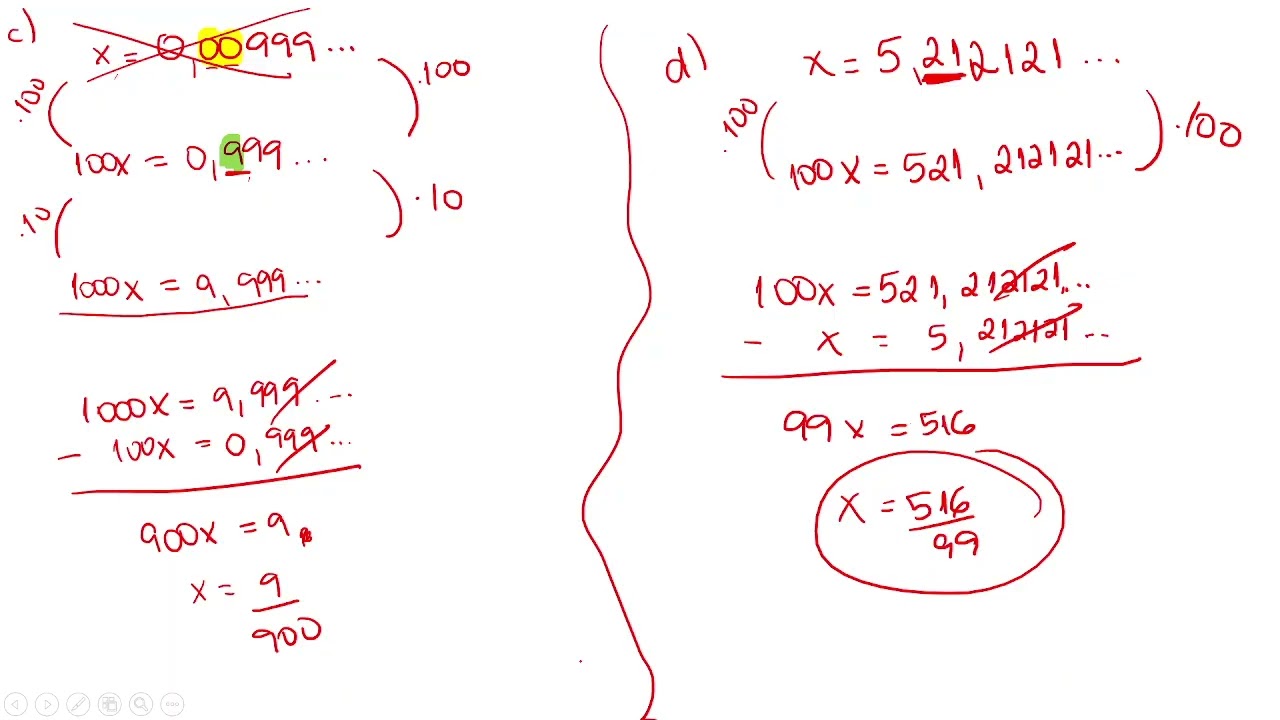 c)
x = 0,00999...
.100
.100
100x = 0,999...
.10
.10
1000x = 9,999...
1000x = 9,999...
- 100x = 0,999...
900x = 9
x = 9
900
d)
x = 5,212121...
.100
.100
100x = 521,212121...
100x = 521,212121...
- x = 5,212121...
99x = 516
x = 516
99